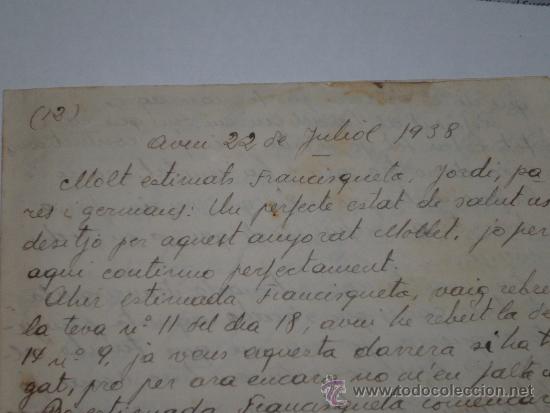 (12)
avui 22 de Juliol 1938
Molt estimats Francisqueta, Jordi, pa-
res i germans: Un perfecte estat de salut us
desitjo per aquest anyorat Mollet, jo per
aqui continuo perfectament.
Ahir estimada Francisqueta, vaig rebre
la teva nº 11 del dia 18, avui he rebut la de
14 nº 9, ja veus aquesta darrera si ha t
gat, pro per ara encara no m'en falta
estimada Francisqueta
todocoleccion
www.todocoleccion.net